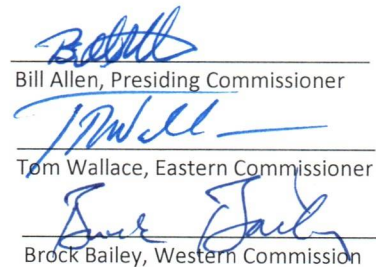 Bill Allen, Presiding Commissioner
Tom Wallace, Eastern Commissioner
Brock Bailey
Brock Bailey, Western Commission